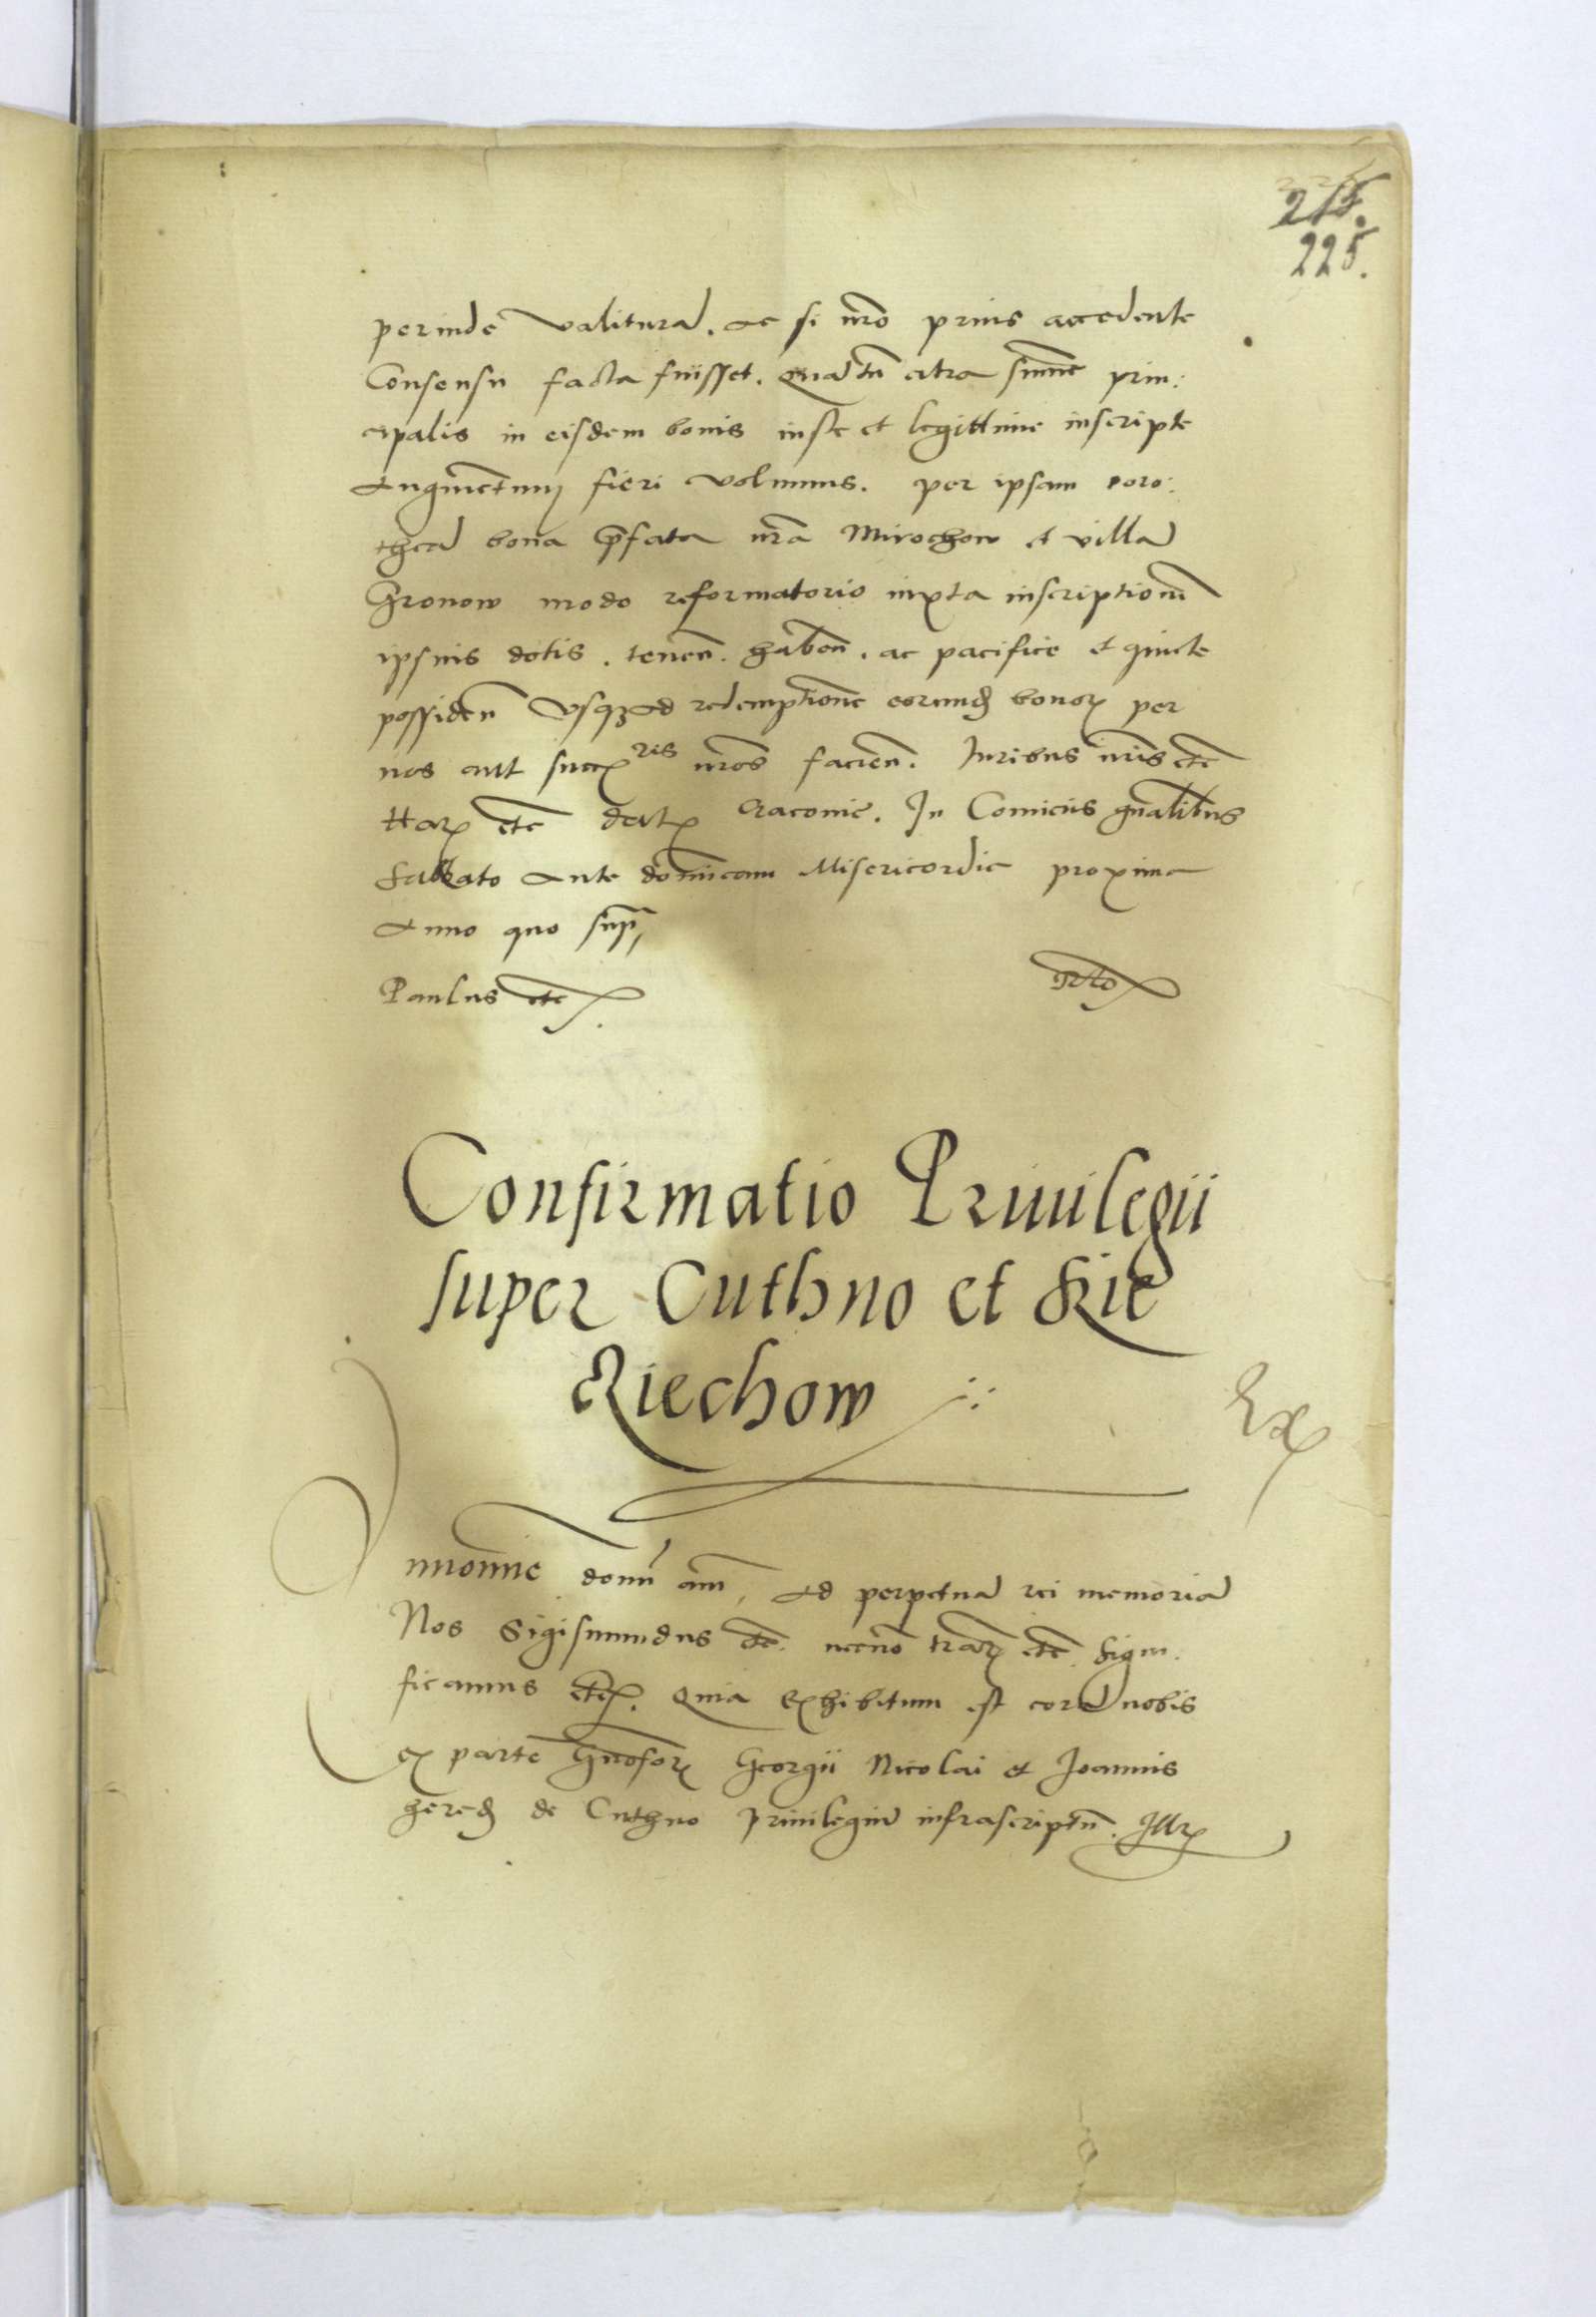 215.
225.
perinde valiturā. ac si nr̄o prius accedente
Consensu facta fuisset. quā tn̄ citra sum̄e prin:
cipalis in eisdem bonis iuste et legittime inscripte
augmentum fieri volumus. per ipsam Doro:
theā bona p̄fata nr̄a Mirochow et villā
Gronow modo reformatorio iuxta inscriptionē
ipsius dotis. tenen̄. haben̄. ac pacifice et quiete
possiden̄ vsq̃ ad redemptionē eorund bonoꝝ per
nos aut succres nr̄os facien̄. Iuribus nr̄is etc̄
ttaꝝ etc̄ datꝝ Cracouie. In Comiciis gn̄alibus
Sabbato ante dominicam Misericordie proxime
Anno quo sup̄
Paulus etc̄
Rto
Confirmatio Priuilegii
super Cuthno et Sie
Ciechow
Ex
In nomine domi am̄, ad perpetuā rei memoriā
Nos Sigismundus etc̄. necno traꝝ etc̄. Signi
ficamus etc̄. Quia exhibitum est corā nobis
ex parte Gn̄osoꝝ Georgii Nicolai et Joannis
hered de Cuthno Priuilegiū infrascriptū. Illꝝ